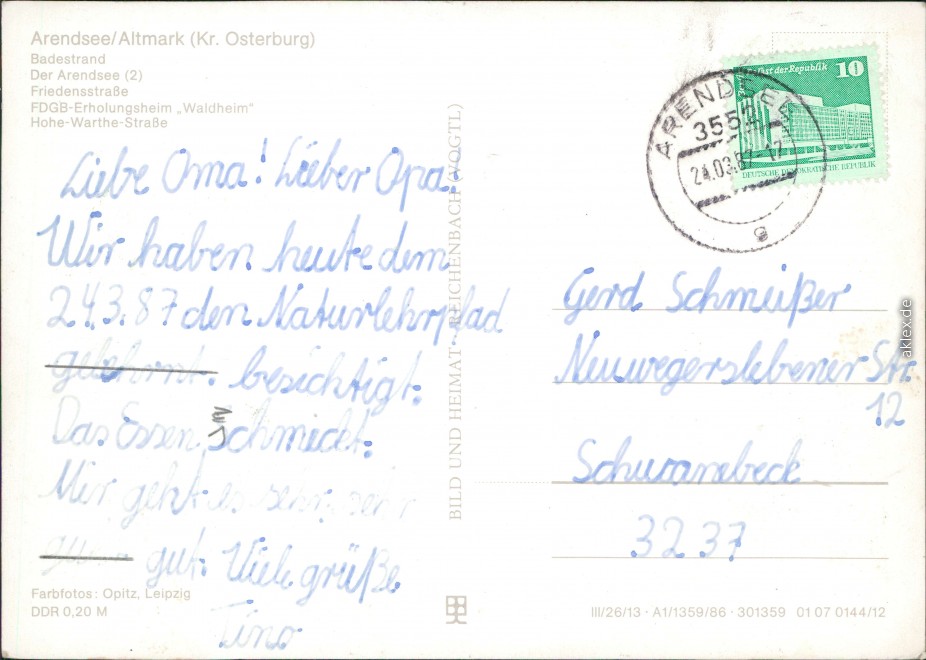 Arendsee/Altmark (Kr. Osterburg)
Badestrand
Der Arendsee (2)
Friedensstraße
FDGB-Erholungsheim „Waldheim“
Hohe-Warthe-Straße
Liebe Oma! Lieber Opa!
Wir haben heute dem
24.3.87 den Naturlehrpfad
besichtigt.
Das Essen schmeckt.
Mir geht es sehr, sehr
gut. Viele grüße
Tino
Farbfotos: Opitz, Leipzig
DDR 0,20 M
BILD UND HEIMAT REICHENBACH (VOGTL)
ARENDSEE
3552
24.03.87-17
a
Palast der Republik 10
DEUTSCHE DEMOKRATISCHE REPUBLIK
Gerd Schmeißer
Neuwegerslebener Str.
12
Schwanebeck
3237
III/26/13 · A1/1359/86 · 301359 01 07 0144/12
aklex.de